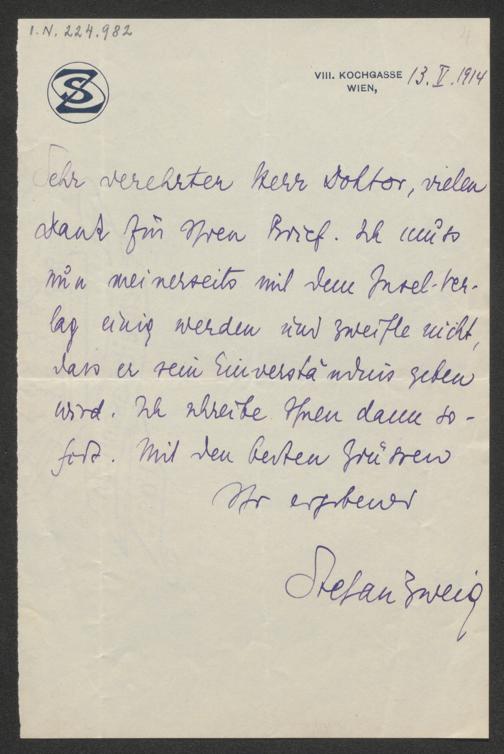 I.N. 224.982
4
SZ
VIII. KOCHGASSE 13.V.1914
WIEN,
Sehr verehrter Herr Doktor, vielen
Dank für Ihren Brief. Ich muss
nun meinerseits mit dem Insel-Ver-
lag einig werden und zweifle nicht,
dass er sein Einverständnis geben
wird. Ich schreibe Ihnen dann so-
fort. Mit den besten Grüssen
Ihr ergebener
Stefan Zweig